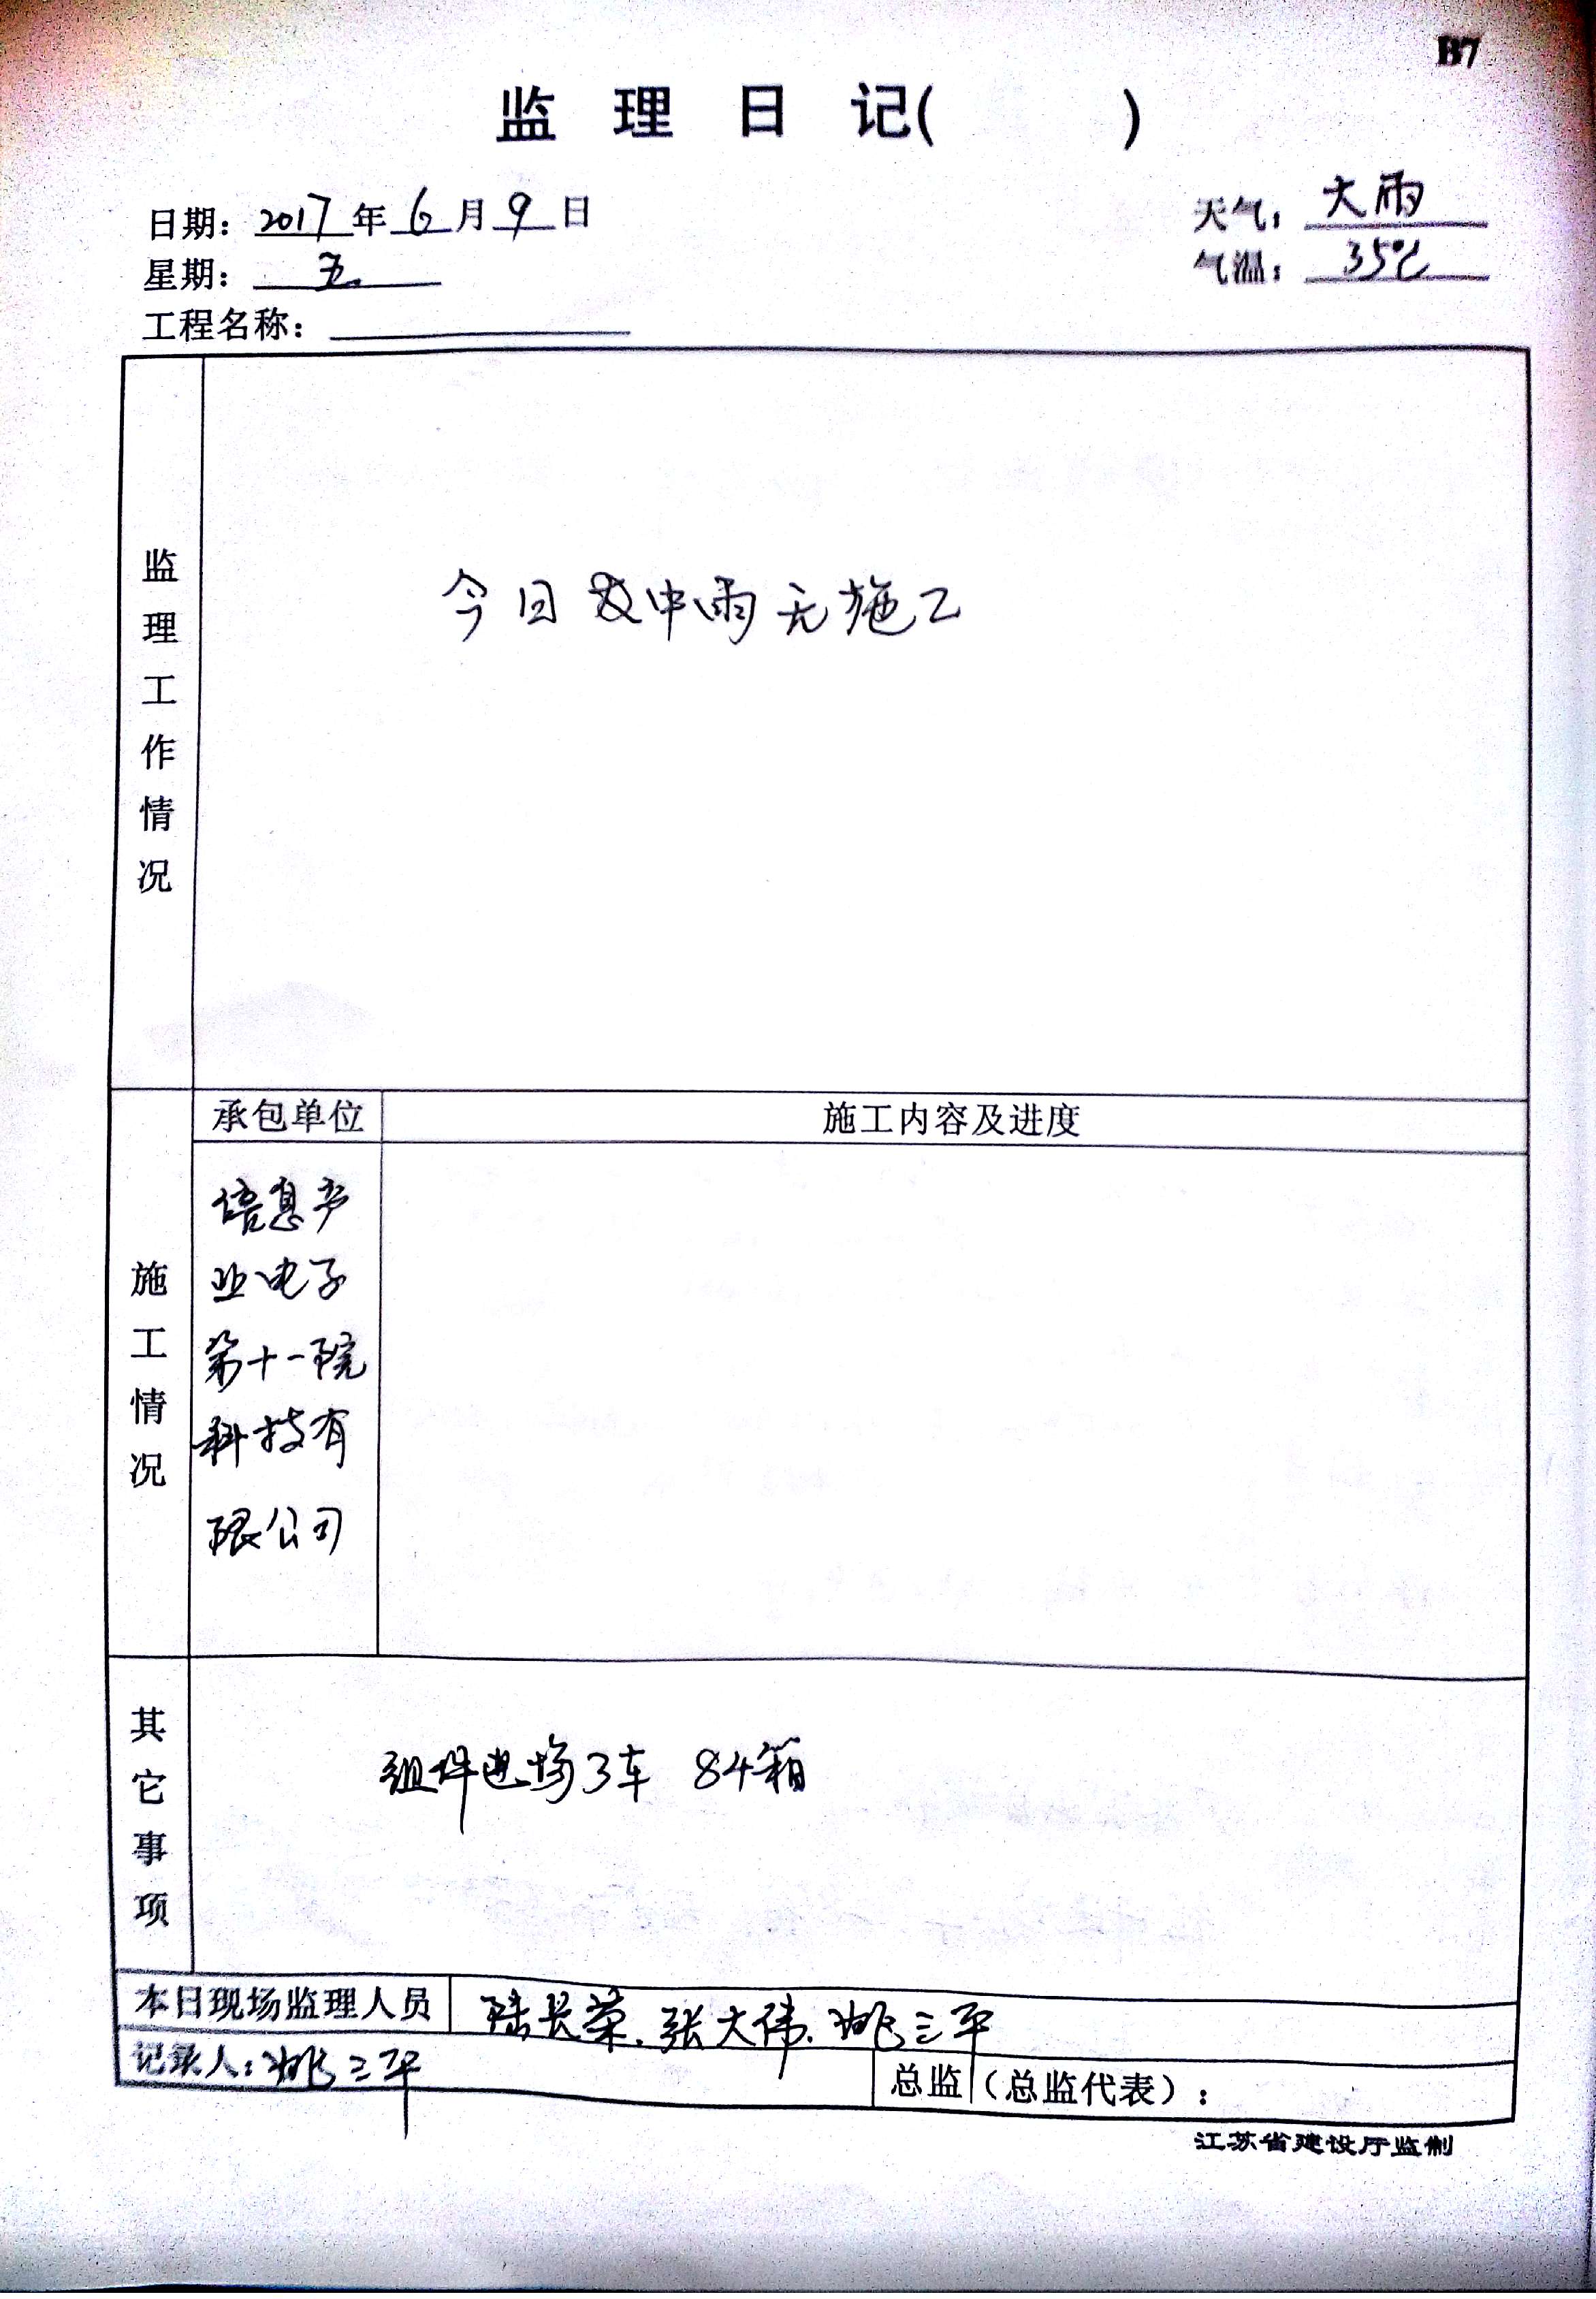 B7
监 理 日 记( )
日期: 2017 年 6 月 9 日
天气: 大雨
星期: 五
气温: 35℃
工程名称:
监理工作情况
今日 中雨无施工
施工情况
承包单位
施工内容及进度
信息产
业电子
第十一院
科技有
限公司
其它事项
组件进场3车 84箱
本日现场监理人员
陆长荣.张大伟.姚三平
记录人:姚三平
总监(总监代表):
江苏省建设厅监制